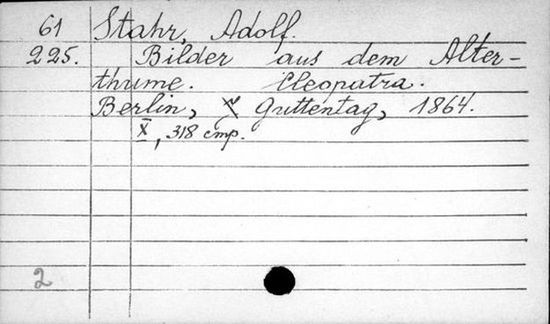 61 Stahr, Adolf.
225. Bilder aus dem Alter-
thume. Cleopatra.
Berlin, Guttentag, 1864.
X, 318 cmp.
2